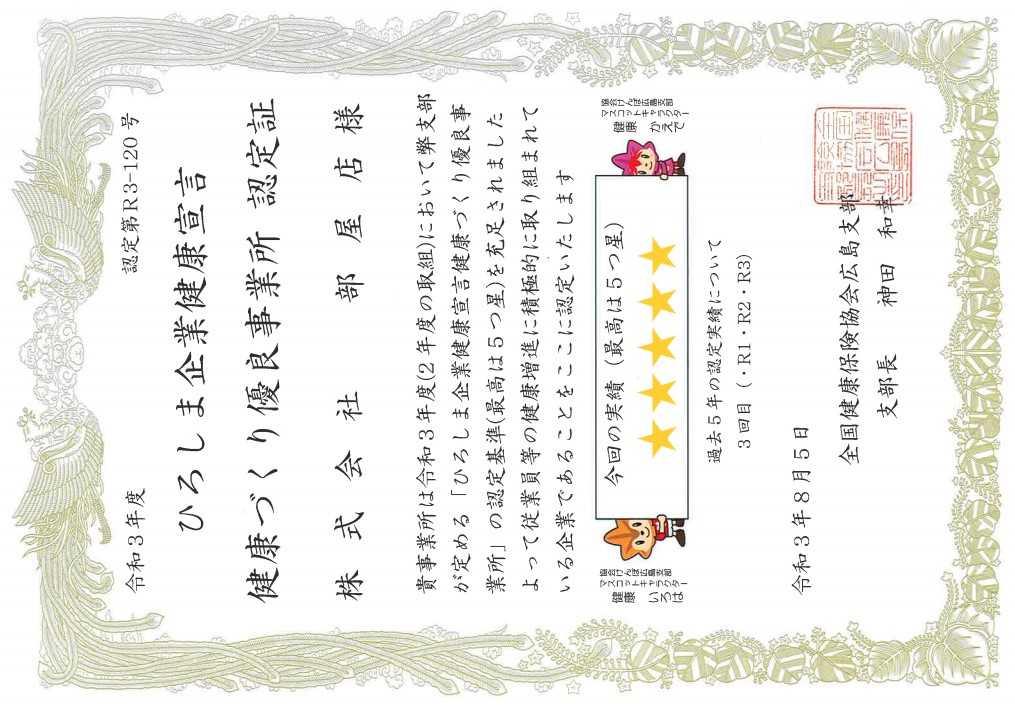 令和３年度
認定第R3-120号
ひろしま企業健康宣言
健康づくり優良事業所 認定証
株式会社 部屋店様
貴事業所は令和３年度(２年度の取組)において弊支部
が定める「ひろしま企業健康宣言健康づくり優良事
業所」の認定基準(最高は５つ星)を充足されました
よって従業員等の健康増進に積極的に取り組まれて
いる企業であることをここに認定いたします
今回の実績（最高は５つ星）
★★★★★
協会けんぽ広島支部
マスコットキャラクター
健康 いろは
協会けんぽ広島支部
マスコットキャラクター
健康 かえで
過去５年の認定実績について
３回目（・R1・R2・R3）
令和３年８月５日
全国健康保険協会広島支部
支部長 神田 和幸